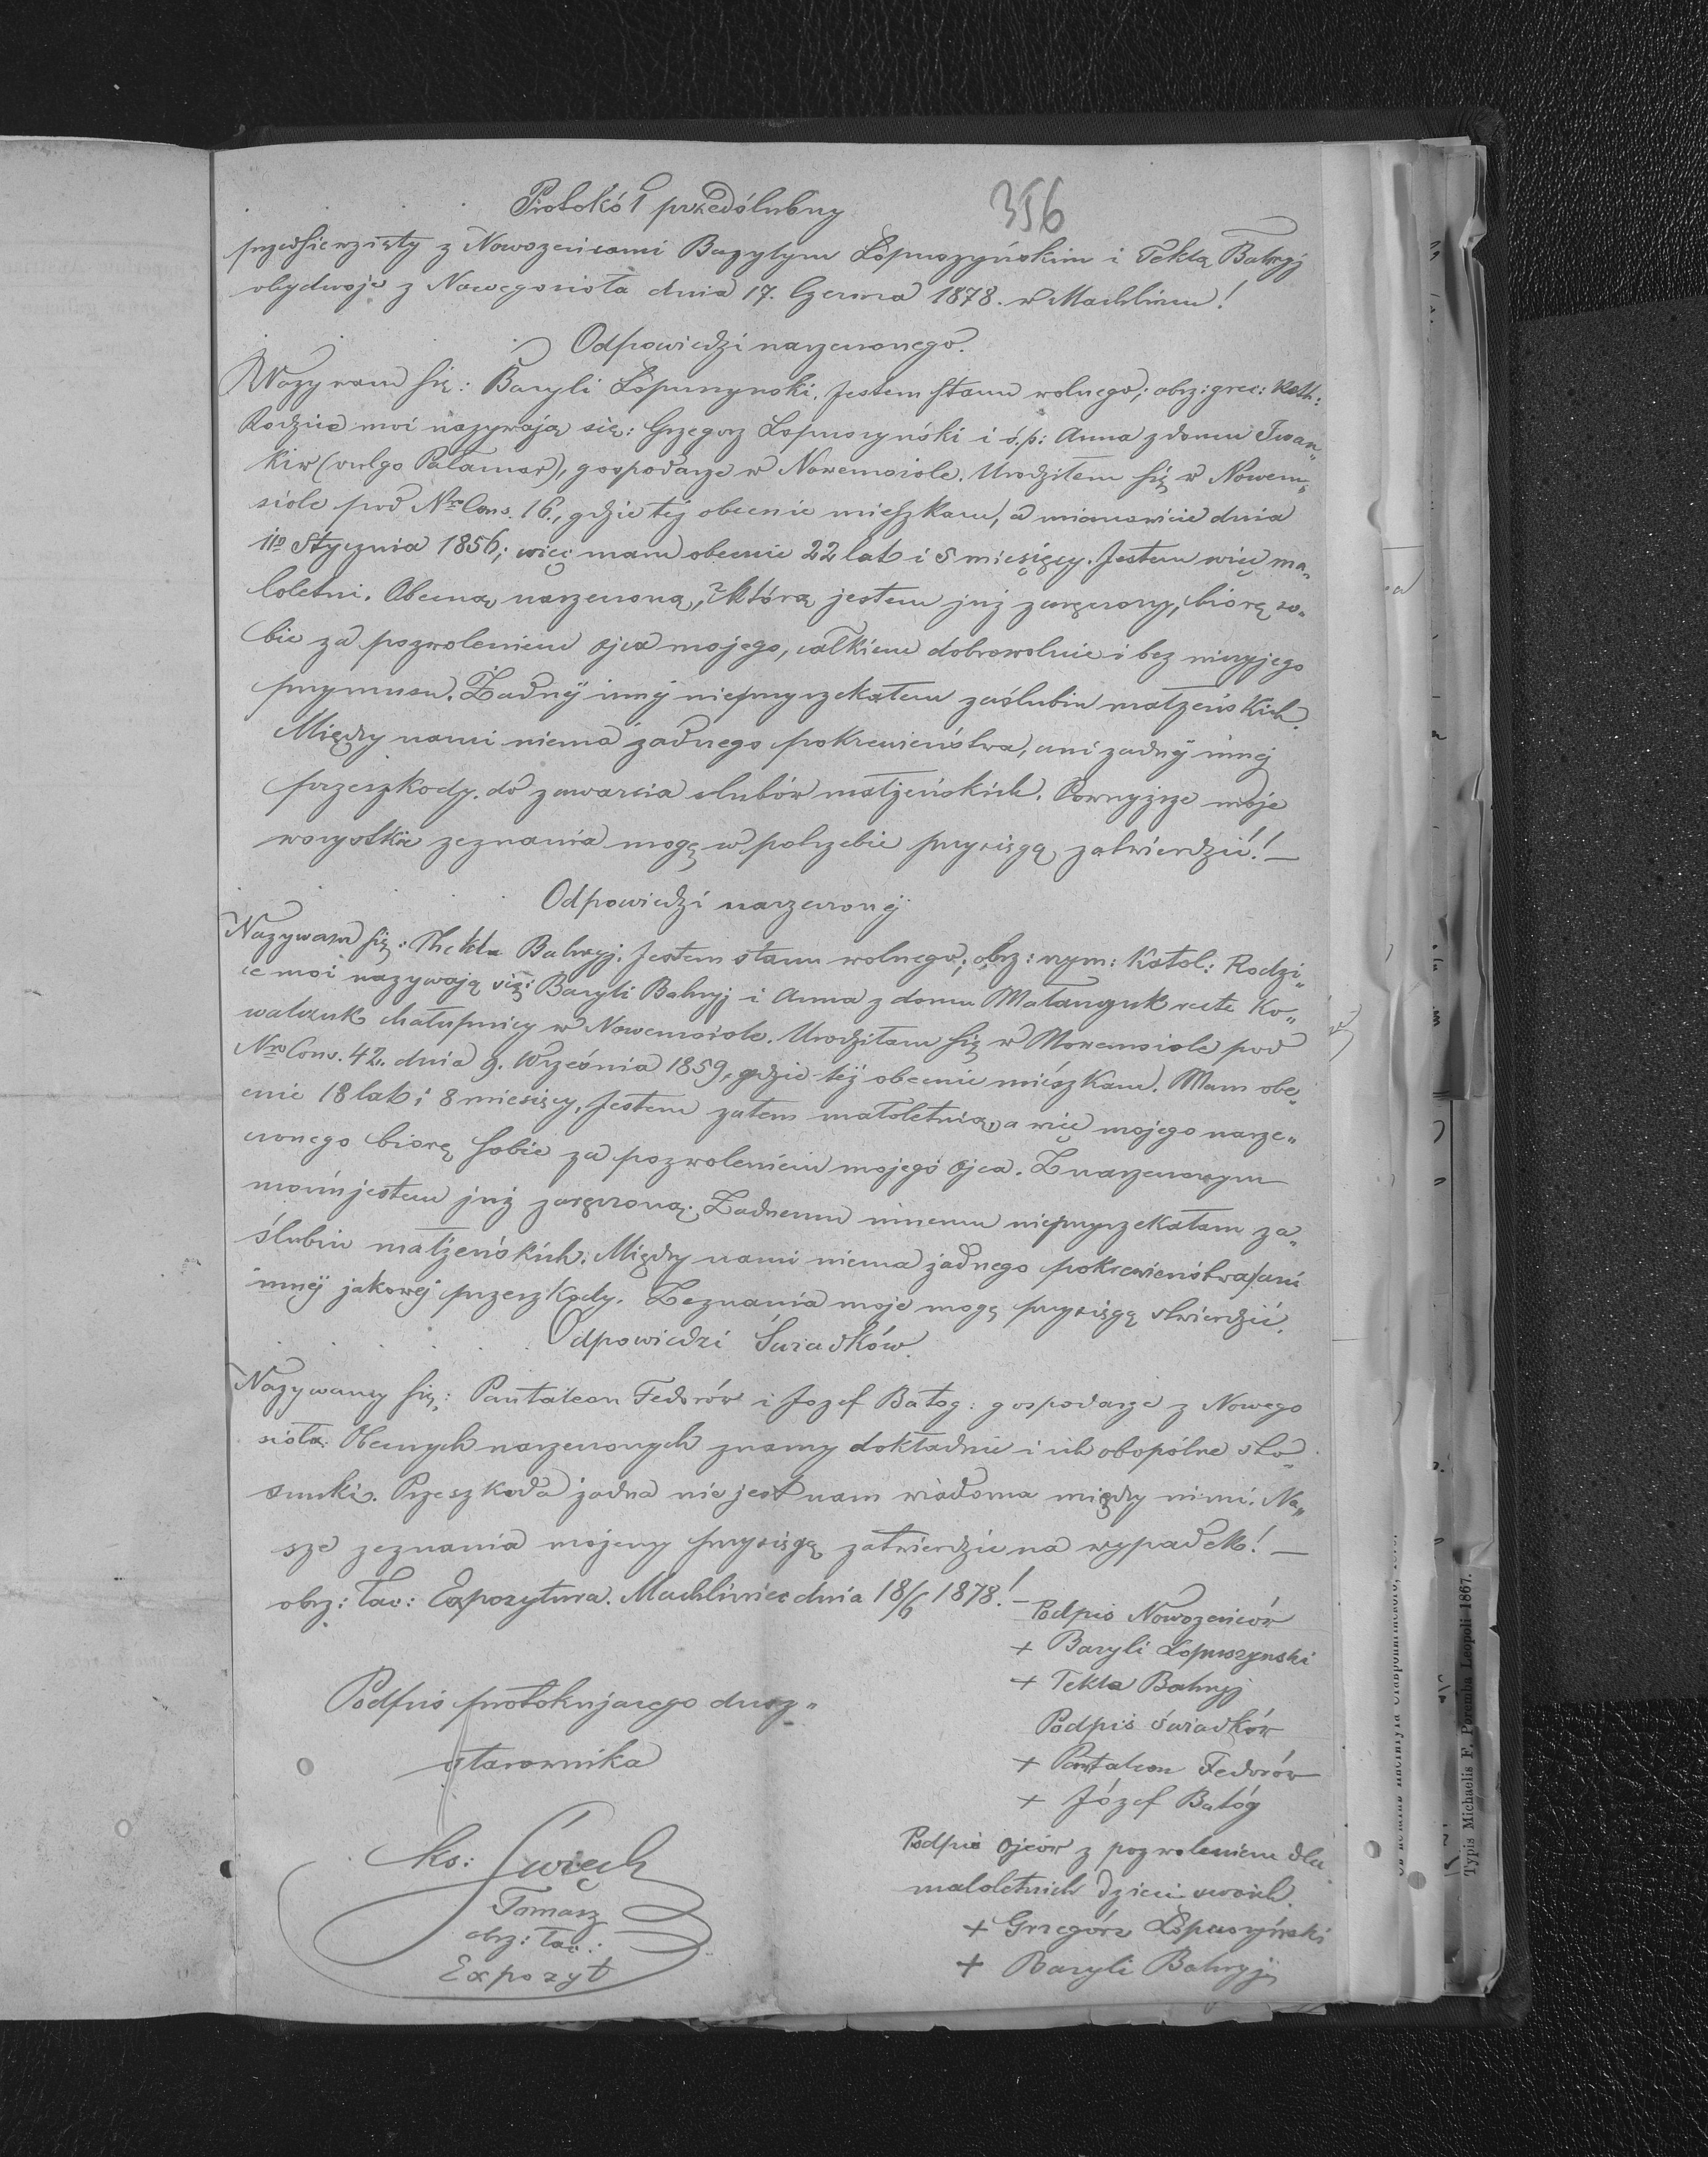 356
Protokół przedślubny
przedsięwzięty z Nowożeńcami Bazylym Łopuszyńskim i Teklą Bahryj
obydwoje z Nowegosioła dnia 17. Czerwca 1878. w Machlińcu!
Odpowiedzi narzeczonego.
Nazywam się: Bazyli Łopuszynski. Jestem stanu wolnego; obrz: grec: Kath:
Rodzice moi nazywają się: Grzegorz Łopuszyński i ś.p: Anna z domu Iwan„
kiw (vulgo Pałamar), gospodarze w Nowemsiole. Urodziłem się w Nowem„
siole pod Nro Cons. 16., gdzie też obecnie mieszkam, a mianowicie dnia
11o Stycznia 1856; więc mam obecnie 22 lat i 5 miesięcy. Jestem więc ma„
loletni. Obecną narzeczoną, z którą jestem już zaręczony, biorę so„
bie za pozwoleniem ojca mojego, całkiem dobrowolnie i bez niczyjego
przymusu. Żadnéj innéj nieprzyrzekałem zaślubin małżeńskich.
Między nami niema żadnego pokrewieństwa, ani żadnéj innej
przeszkody do zawarcia ślubów małżeńskich. Powyższe moje
wszystkie zeznania mogę w potrzebie przysięgą zatwierdzić! —
Odpowiedzi narzeczonéj
Nazywam się: Thekla Bahryj. Jestem stanu wolnego; obrz: rzym: Katol: Rodzi„
ce moi nazywają się: Bazyli Bahryj i Anna z domu Małanczuk recte Ko„
walczuk chałupnicy w Nowemsiole. Urodziłam się w Nowemsiole pod
Nro Cons. 42. dnia 9. Września 1859, gdzie téż obecnie miészkam. Mam obe„
cnie 18 lat i 8 miesięcy, Jestem zatem małoletnią, a więc mojego narze„
czonego biorę sobie za pozwoleniem mojego ojca. Z narzeczonym
moim jestem już zaręczoną. Żadnemu innemu nieprzyrzekałam za„
ślubin małżeńskich. Między nami niema żadnego pokrewieństwa, ani
innéj jakowej przeszkody. Zeznania moje mogę przysięgą stwierdzić.
Odpowiedzi Świadków.
Nazywamy się: Pantaleon Fedorów i Jozef Bałog: gospodarze z Nowego
sioła. Obecnych narzeczonych znamy dokładnie i ich obopólne sto„
sunki. Przeszkoda żadna nie jest nam wiadoma między nimi. Na„
sze zeznania możemy przysięgą zatwierdzić na wypadek! —
obrz: łac: Expozytura. Machliniec dnia 18/6 1878! —
Podpis Nowożeńców
+ Bazyli Łopuszynski
+ Tekla Bahryj
Podpis świadków
+ Pantaleon Fedorów
+ Józef Bałóg
Podpis protokującego dusz„
pasterownika
ks: Święch
Tomasz
obrz: łac:
Expozyt
Podpis Ojców z pozwoleniem dla
maloletnich dzieci swoich.
+ Grzegórz Łopuszyński
+ Bazyli Bahryj
Typis Michaelis F. Poremba Leopoli 1867.